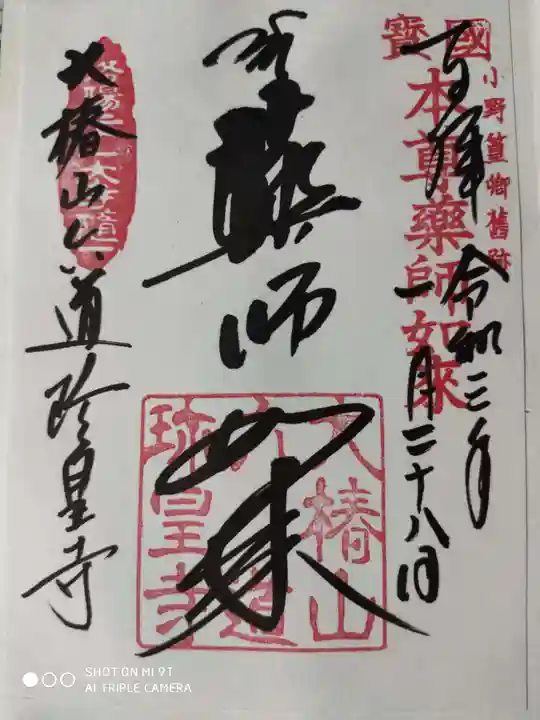 國寳
小野篁卿舊跡
本尊薬師如來
奉拝
令和三年
一月二十八日
薬師如来
大椿山
六道
珍皇寺
大椿山六道珍皇寺
SHOT ON MI 9T
AI TRIPLE CAMERA